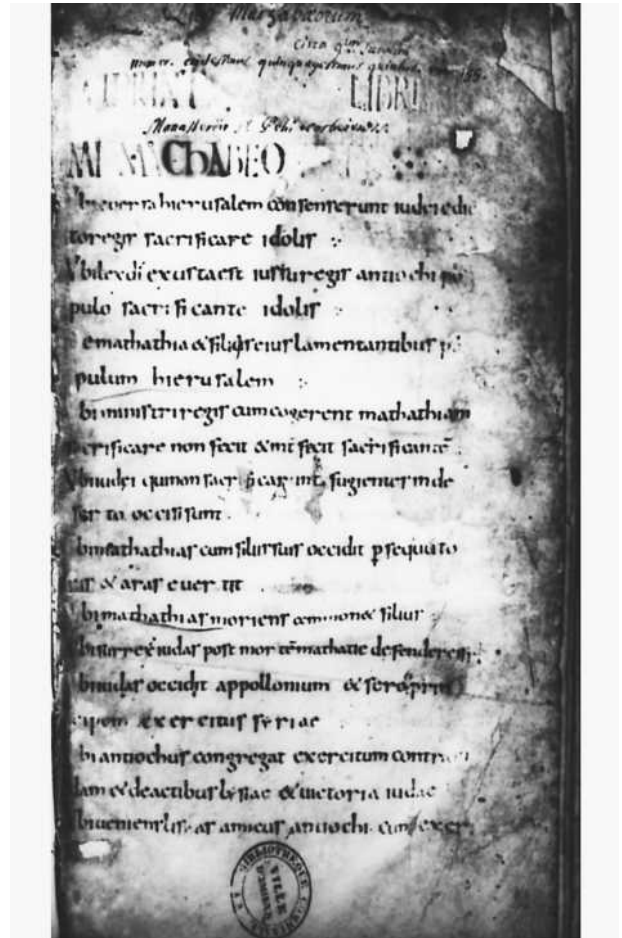 Machabaeorum
circa 9um
numer. quinquagesimus quintus
LIBRI
Monasterii St Petri corbeiensis
MACHABEO
Vbi eversa hierusalem consenserunt iudei edic
to regis sacrificare idolis
Vbi lex di exusta est iussu regis antiochi po
pulo sacrificante idolis
De mathathia & filiis eius lamentantibus p
pulum hierusalem
Vbi ministri regis cum cogerent mathathiam
sacrificare non fecit & int fecit sacrificantē
Vbi iudei qui non sacrificarint fugientes in de
serto occisi sunt
Vbi mathathias cum filiis suis occidit psequuto
res & aras evertit
Vbi mathathias moriens ammon& filius
Vbi surrex& iudas post mortē mathatie defender&
Vbi iudas occidit appollonium & seron prin
cipem exercitus syriae
Vbi antiochus congregat exercitum contra
iam & de actibus lysiae & victoria iudae
Vbi veniens lisias amicus antiochi cum exer
BIBLIOTHEQUE COMMUNALE
VILLE D'AMIENS